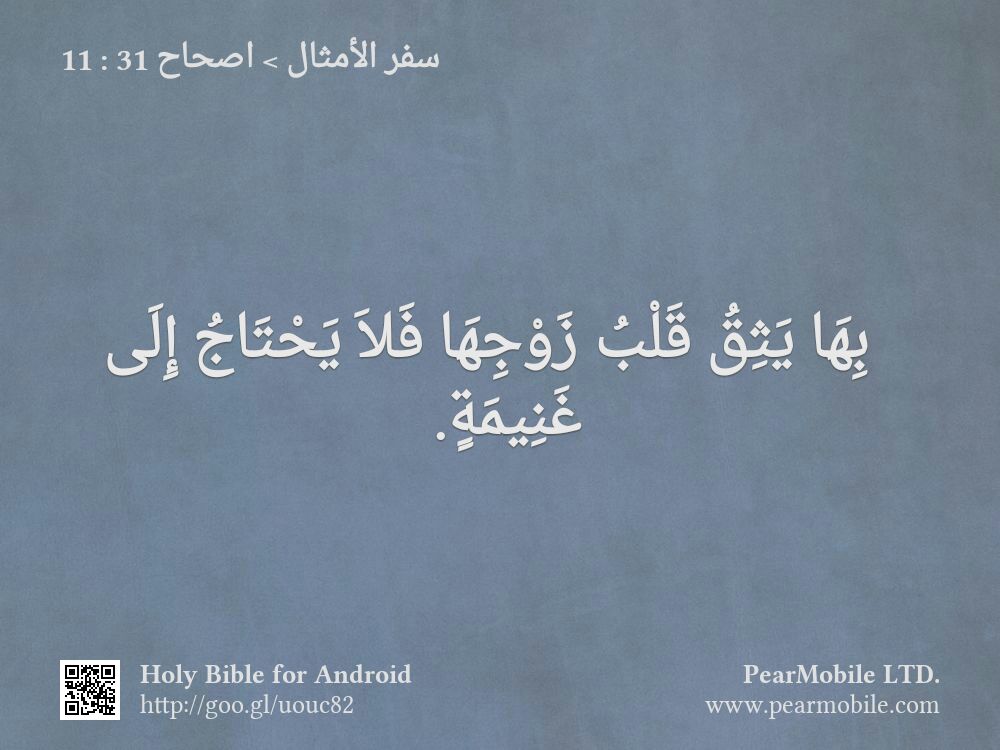 سفر الأمثال > اصحاح 31 : 11
بِهَا يَثِقُ قَلْبُ زَوْجِهَا فَلاَ يَحْتَاجُ إِلَى
غَنِيمَةٍ.
Holy Bible for Android
http://goo.gl/uouc82
PearMobile LTD.
www.pearmobile.com